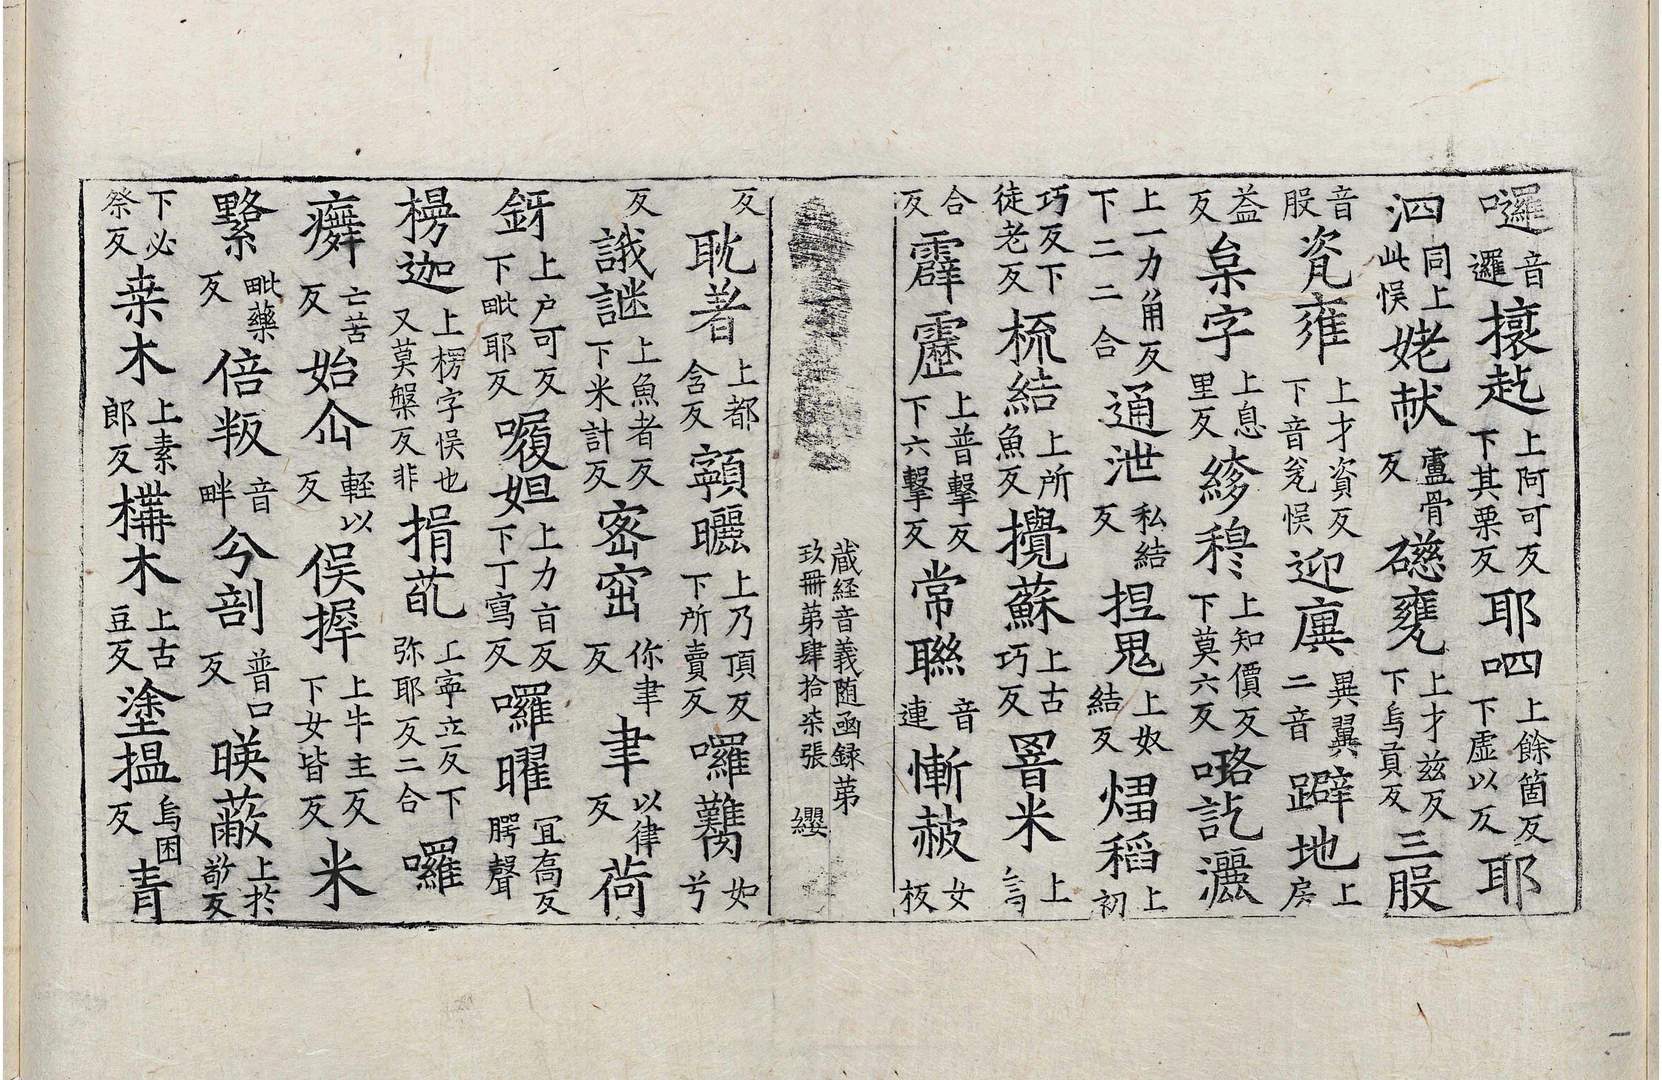 囉音邏攘趂上阿可反下其栗反耶呬上餘箇反下虚以反耶
泗同上此悮姥献盧骨反礠甕上才兹反下烏貢反三股
音股瓷雍上才資反下音瓮悮迎廙異翼二音躃地上房
益反枲字上息里反緣穆上知價反下莫六反㗉訖灑
上一力角反下二二合通泄私結反捏鬼上奴結反熠稻上初
巧反下徒老反梳結上所魚反攪蘇上古巧反詈米上
合反霹靂上普擊反下六擊反常聯音連慚赧女板
蔵経音義随函録苐
玖冊苐肆拾柒張 纓
反耽著上都含反顐曬上乃頂反下所賣反囉虉如兮
反誐謎上魚者反下米計反密密你聿反聿以律反荷
釾上户可反下毗耶反囑妲上力盲反下丁寫反囉曜冝髙反腭聲
楞迦上楞字悮也又莫槃反非捐苝上寜立反下弥耶反二合囉
癖亡苦反始仚軽以反俣搱上牛主反下女皆反米
繄毗藥反倍叛音畔兮剖普口反暎蔽上於敬反
下必祭反桒木上素郎反構木上古豆反塗揾烏困反青